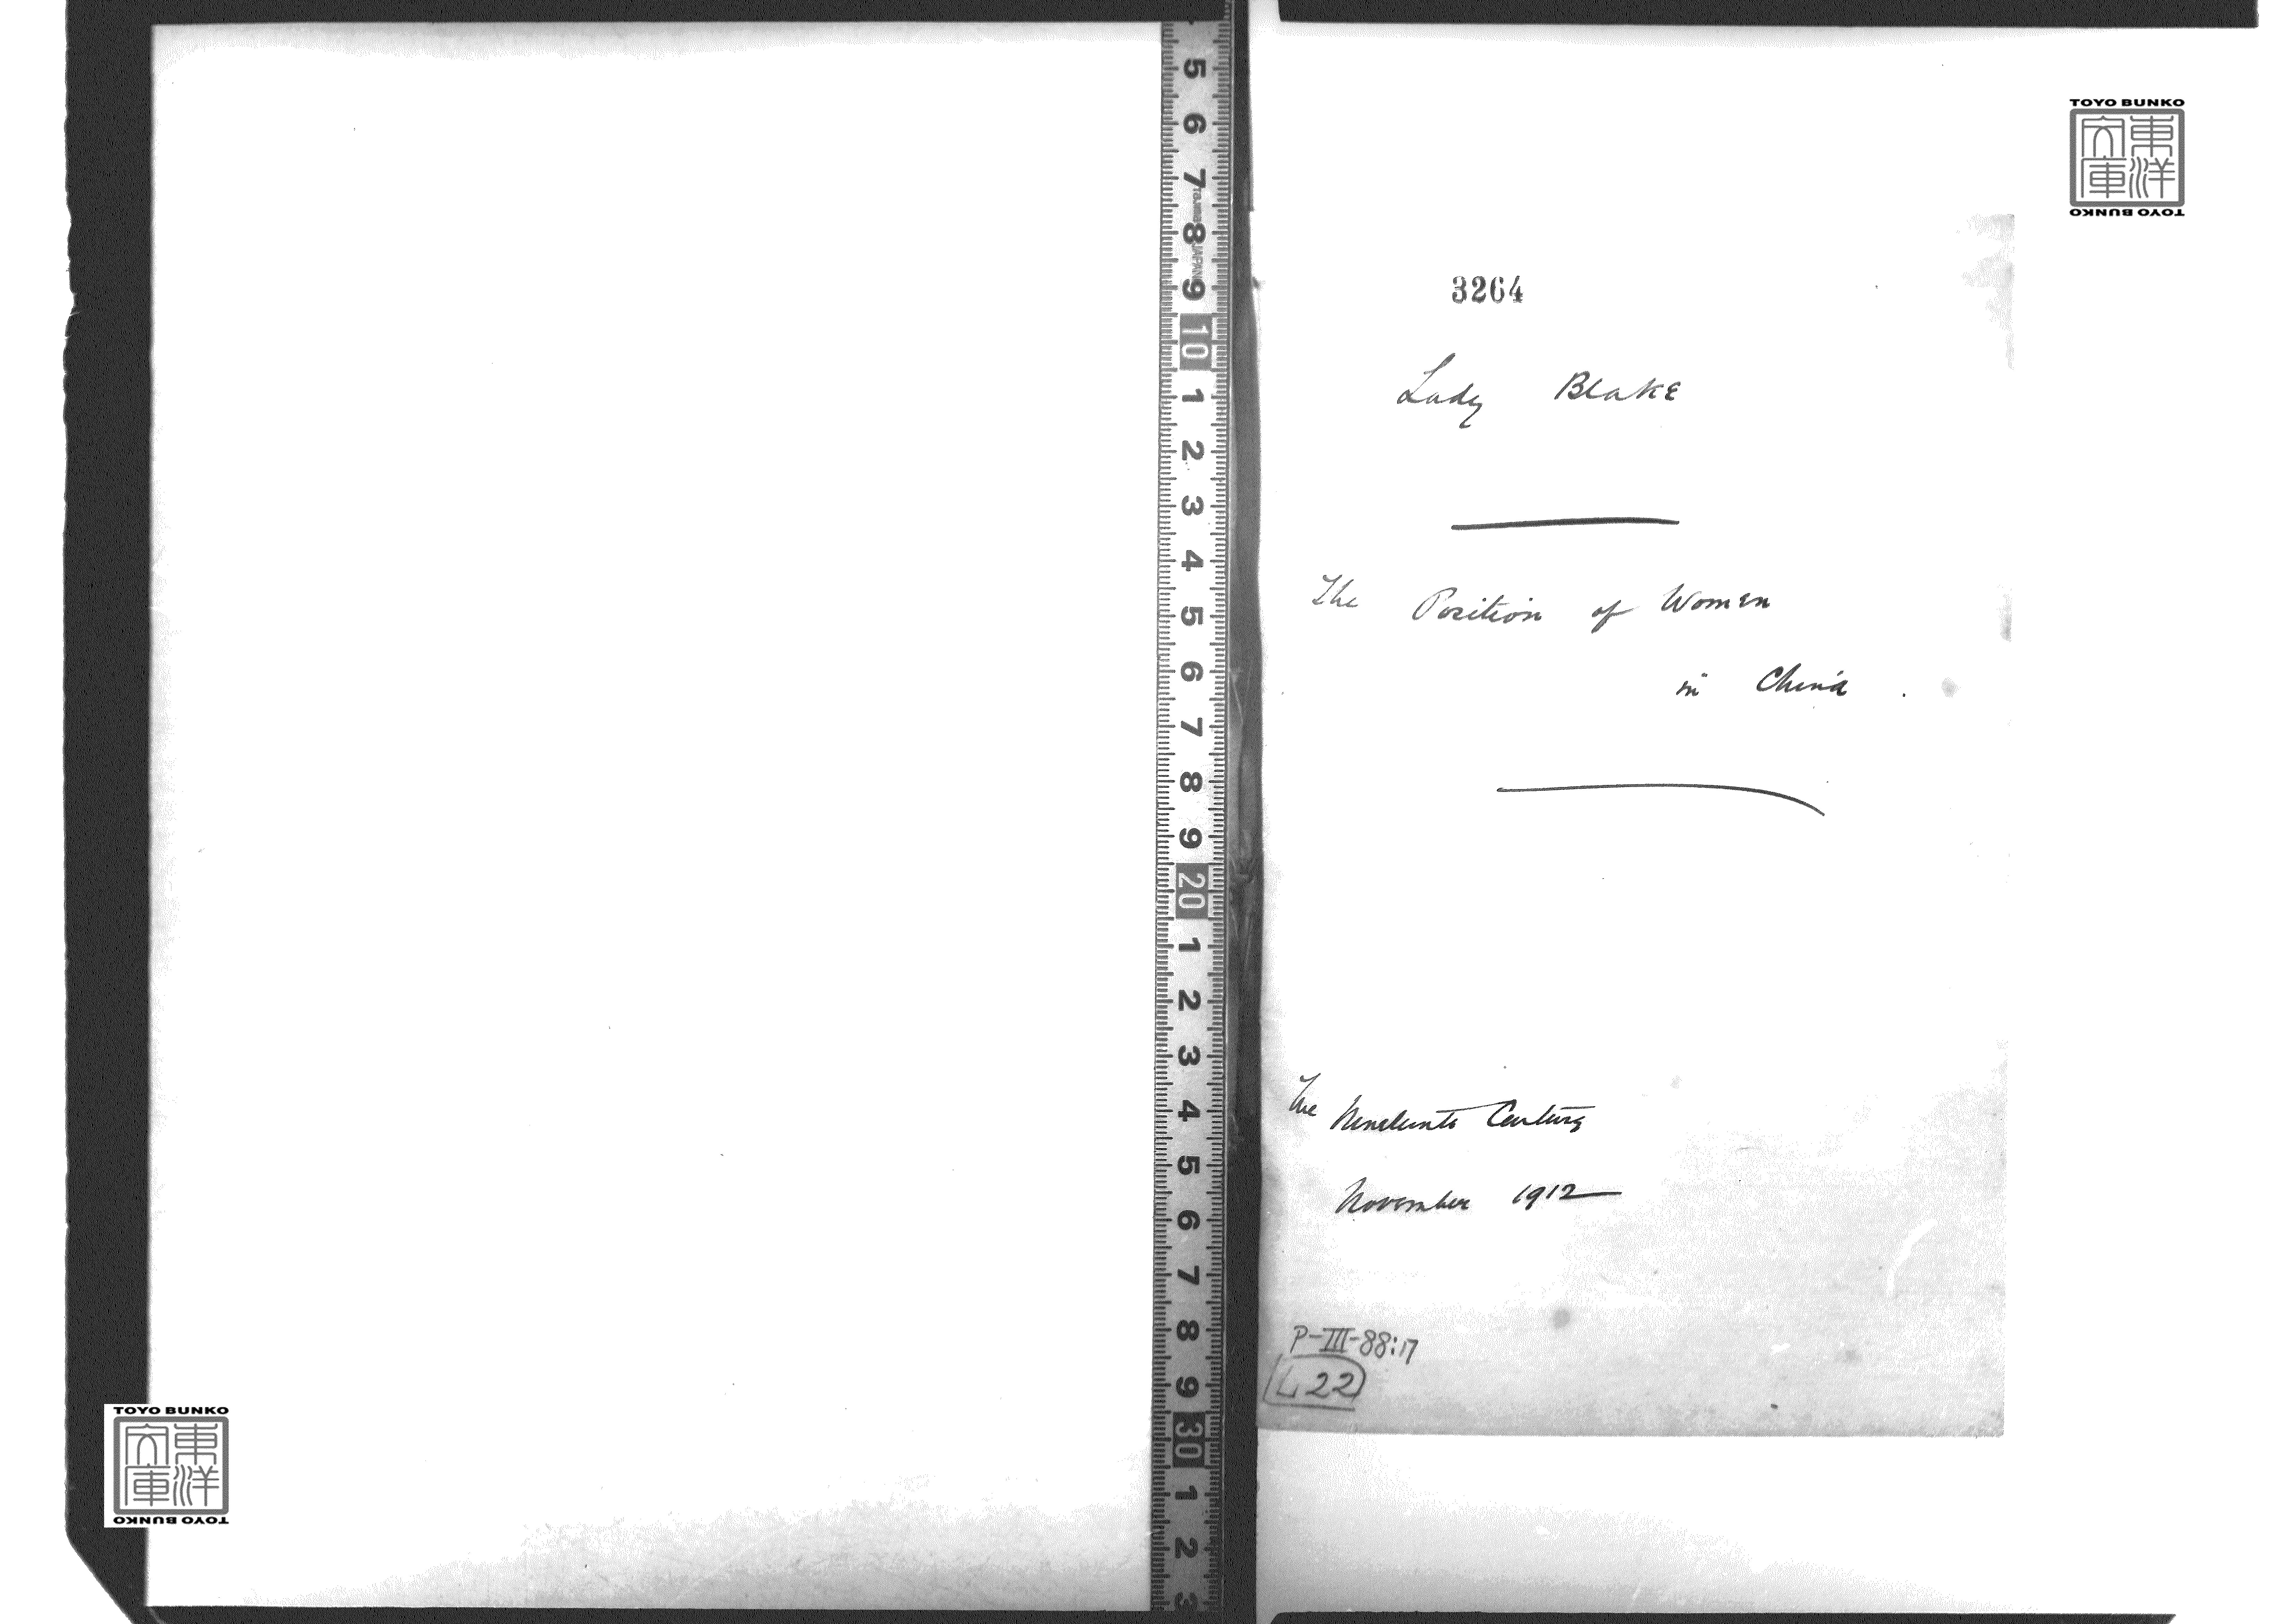 TOYO BUNKO
東洋
文庫
TOYO BUNKO
5 6 7 8 9 10 1 2 3 4 5 6 7 8 9 20 1 2 3 4 5 6 7 8 9 30 1 2 3
JAPAN
3264
Lady Blake
The Position of Women
in China.
The Nineteenth Century
November 1912
P-III-88:17
L 22
TOYO BUNKO
東洋
文庫
TOYO BUNKO